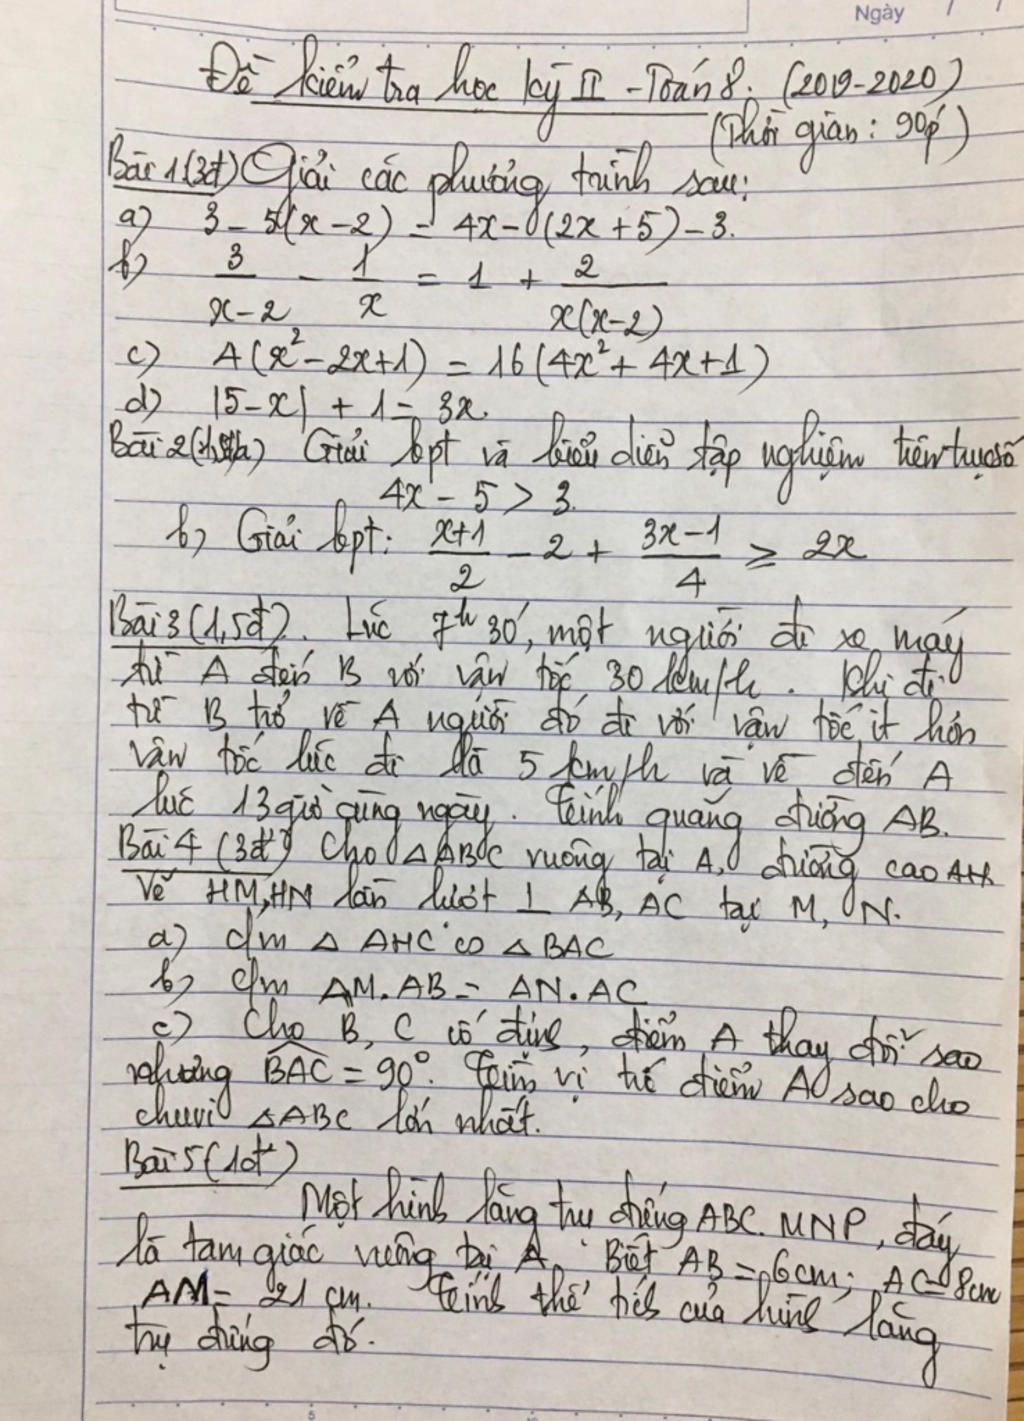 Ngày / /
Đề kiểm tra học kỳ II - Toán 8. (2019-2020)
(Thời gian: 90p')
Bài 1 (3đ) Giải các phương trình sau:
a) 3 - 5(x-2) = 4x - (2x+5) - 3.
b) 3/(x-2) - 1/x = 1 + 2/(x(x-2))
c) 4(x²-2x+1) = 16(4x²+4x+1)
d) |5-x| + 1 = 3x.
Bài 2 Giải bpt và biểu diễn tập nghiệm trên trục số
4x - 5 > 3.
b) Giải bpt: (x+1)/2 - 2 + (3x-1)/4 ≥ 2x
Bài 3 (1,5đ). Lúc 7h 30', một người đi xe máy
từ A đến B với vận tốc 30 km/h. Khi đi
từ B trở về A người đó đi với vận tốc ít hơn
vận tốc lúc đi là 5 km/h và về đến A
lúc 13 giờ cùng ngày. Tính quãng đường AB.
Bài 4 (3đ) Cho △ABC vuông tại A, đường cao AH.
Vẽ HM, HN lần lượt ⊥ AB, AC tại M, N.
a) c/m △ AHC ∽ △ BAC
b) c/m AM.AB = AN.AC
c) Cho B, C cố định, điểm A thay đổi sao
nhưng BAC = 90°. Tìm vị trí điểm A sao cho
chuvi △ABC lớn nhất.
Bài 5 (1đ)
Một hình lăng trụ đứng ABC.MNP, đáy
là tam giác vuông tại A. Biết AB = 6cm; AC = 8cm
AM = 21 cm. Tính thể tích của hình lăng
trụ đứng đó.